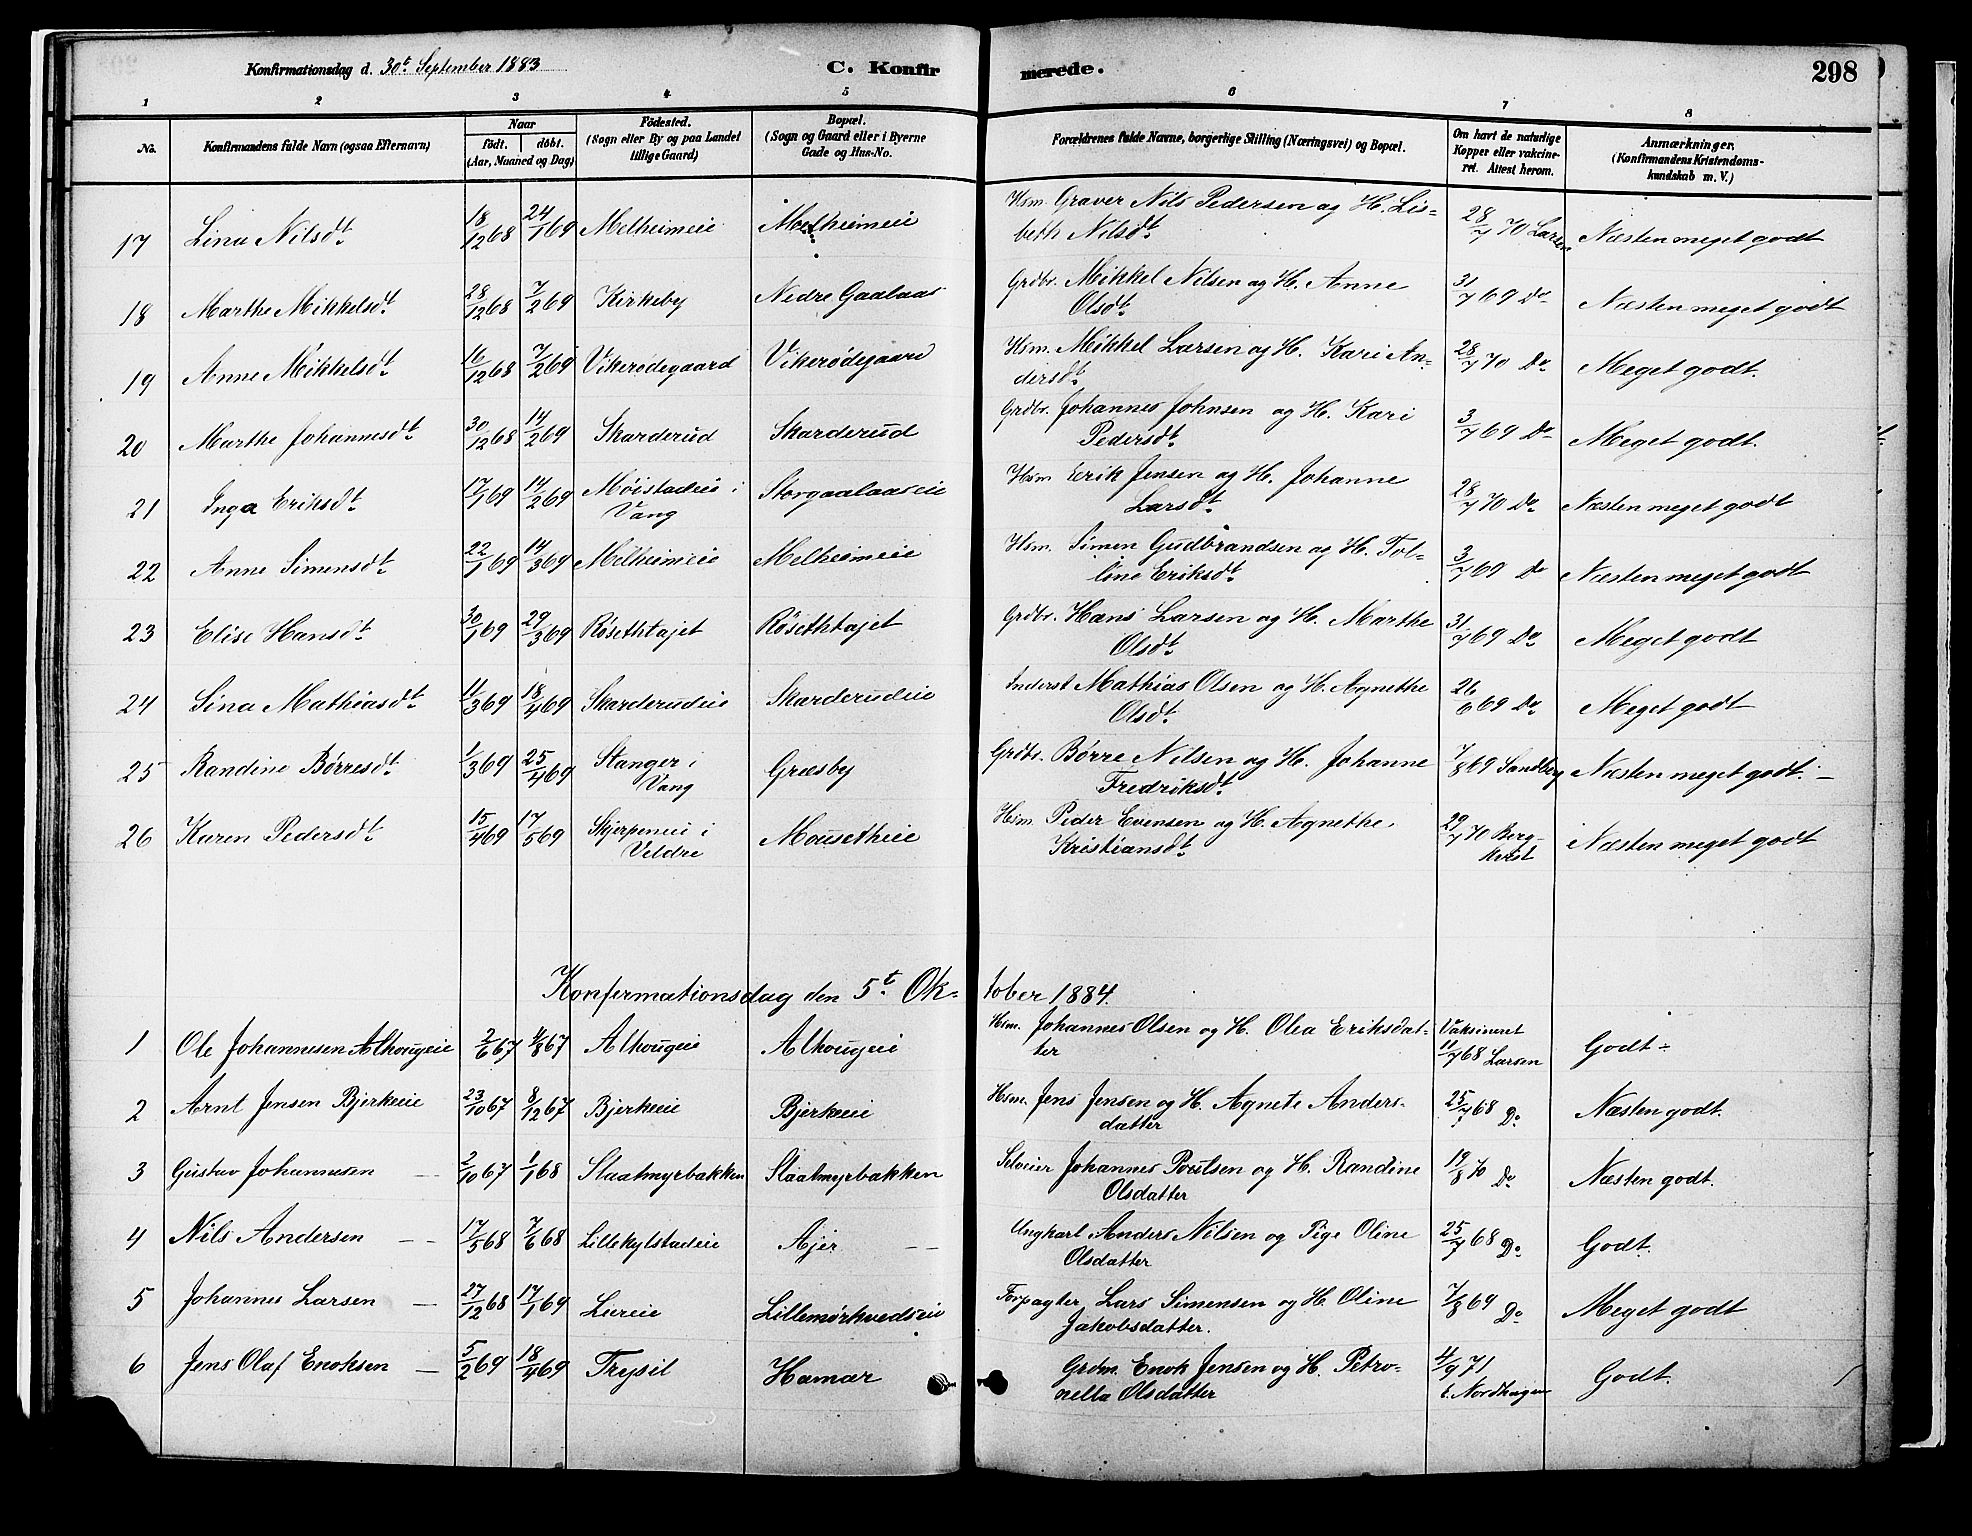 Konfirmationsdag d. 30t September 1883 C. Konfirmerede. 298
1 2 3 4 5 6 7 8
No. Konfirmandens fulde Navn (ogsaa Efternavn) Naar født. døbt. (Aar, Maaned og Dag) Fødested. (Sogn eller By og paa Landet tillige Gaard) Bopæl. (Sogn og Gaard eller i Byerne Gade og Hus-No. Forældrenes fulde Navne, borgerlige Stilling (Næringsvei) og Bopæl. Om havt de naturlige Kopper eller vakcineret. Attest herom. Anmærkninger. (Konfirmandens Kristendomskundskab m. V.)
17 Lina Nilsdt. 18/12 68 24/1 69 Melheimeie Melheimeie Hsm. Graver Nils Pedersen og H. Lisbeth Nilsdt. 28/7 70 Larsen Næsten meget godt
18 Marthe Mikkelsdt. 28/12 68 7/2 69 Kirkeby Nedre Gaalaas Grdbr. Mikkel Nilsen og H. Anne Olsdt. 31/7 69 Do Næsten meget godt
19 Anne Mikkelsdt. 16/12 68 7/2 69 Vikerødegaard Vikerødegaard Hsm. Mikkel Larsen og H. Kari Andersdt. 28/7 70 Do Meget godt.
20 Marthe Johannesdt. 30/12 68 14/2 69 Skarderud Skarderud Grdbr. Johannes Johnsen og H. Kari Pedersdt. 3/7 69 Do Meget godt.
21 Inga Eriksdt. 17/1 69 14/2 69 Møistadeie i Vang Storgaalaaseie Hsm Erik Jensen og H. Johanne Larsdt. 28/7 70 Do Næsten meget godt
22 Anne Simensdt. 22/1 69 14/3 69 Melheimeie Melheimeie Hsm. Simen Gudbrandsen og H. Tolline Eriksdt. 3/7 69 Do Næsten meget godt
23 Elise Hansdt. 30/1 69 29/3 69 Røsethtajet Røsethtajet Grdbr. Hans Larsen og H. Marthe Olsdt. 31/7 69 Do Meget godt
24 Sina Mathiasdt. 11/3 69 18/4 69 Skarderudeie Skarderudeie Inderst Mathias Olsen og H. Agnethe Olsdt. 26/6 69 Do Meget godt
25 Randine Børresdt. 1/3 69 25/4 69 Stanger i Vang Græsby Grdbr. Børre Nilsen og H. Johanne Fredriksdt. 7/8 69 Sandberg Næsten meget godt. –
26 Karen Pedersdt. 15/4 69 17/5 69 Skjerpeneie i Veldre Mousetheie Hsm. Peder Evensen og H. Agnethe Kristiansdt. 29/7 70 Bergkvist Næsten meget godt
Konfirmationsdag den 5t. Oktober 1884.
1 Ole Johannesen Alhougeie 2/6 67 4/8 67 Alhougeie Alhougeie Hsm. Johannes Olsen og H. Olea Eriksdatter Vaksineret 11/7 68 Larsen Godt –
2 Arnt Jensen Bjerkeeie 23/10 67 8/12 67 Bjerkeeie Bjerkeeie Hsm. Jens Jensen og H. Agnete Andersdatter 25/7 68 Do Næsten godt.
3 Gustav Johannesen — 2/10 67 1/1 68 Slaatmyrbakken Slaatmyrbakken Selveier Johannes Poulsen og H. Randine Olsdatter 19/8 70 Do Næsten godt.
4 Nils Andersen — 17/5 68 7/6 68 Lillekylstadeie Ajer — Ungkarl Anders Nilsen og Pige Oline Olsdatter 25/7 68 Do Godt.
5 Johannes Larsen — 27/12 68 17/1 69 Lureie Lillemørkvedseie Forpagter Lars Simensen og H. Oline Jakobsdatter. 7/8 69 Do Meget godt
6 Jens Olaf Enoksen — 5/2 69 18/4 69 Trysil Hamar Grdm. Enok Jensen og H. Petronella Olsdatter 4/9 71 Nordhagen Godt.